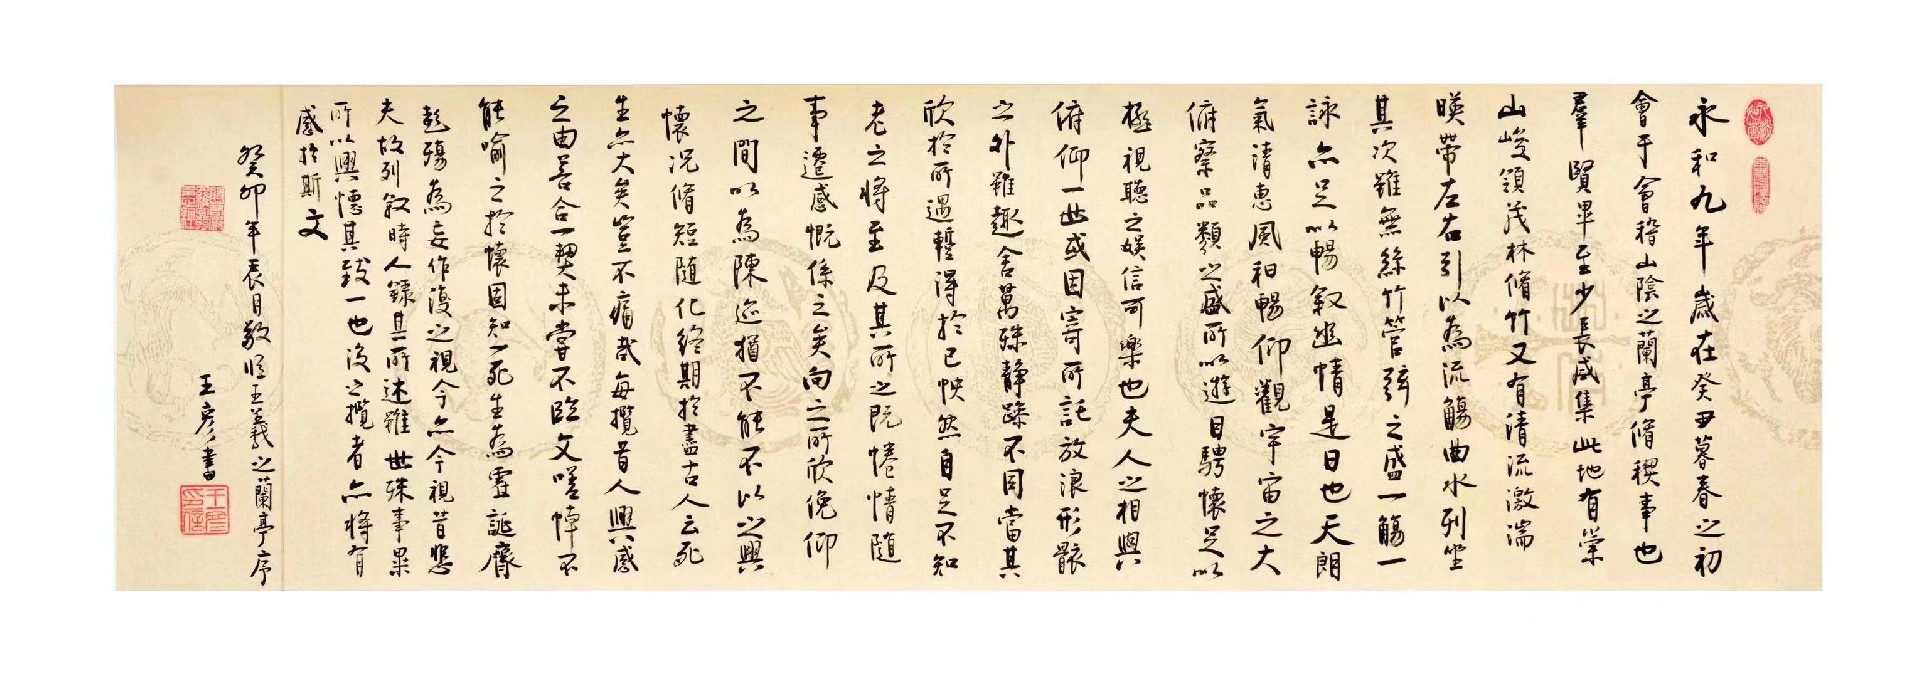 永和九年歲在癸丑暮春之初
會于會稽山陰之蘭亭脩稧事也
羣賢畢至少長咸集此地有崇
山峻領茂林脩竹又有清流激湍
暎帶左右引以為流觴曲水列坐
其次雖無絲竹管弦之盛一觴一
詠亦足以暢叙幽情是日也天朗
氣清惠風和暢仰觀宇宙之大
俯察品類之盛所以遊目騁懷足以
極視聽之娛信可樂也夫人之相與
俯仰一世或因寄所託放浪形骸
之外雖趣舍萬殊靜躁不同當其
欣於所遇蹔得於己怏然自足不知
老之將至及其所之既惓情隨
事遷感慨係之矣向之所欣俛仰
之間以為陳迹猶不能不以之興
懷況脩短隨化終期於盡古人云死
生亦大矣豈不痛哉每攬昔人興感
之由若合一契未嘗不臨文嗟悼不
能喻之於懷固知一死生為虛誕齊
彭殤為妄作後之視今亦今視昔悲
夫故列叙時人錄其所述雖世殊事異
所以興懷其致一也後之攬者亦將有
感於斯文
癸卯年辰月敬臨王羲之蘭亭序
王彥書